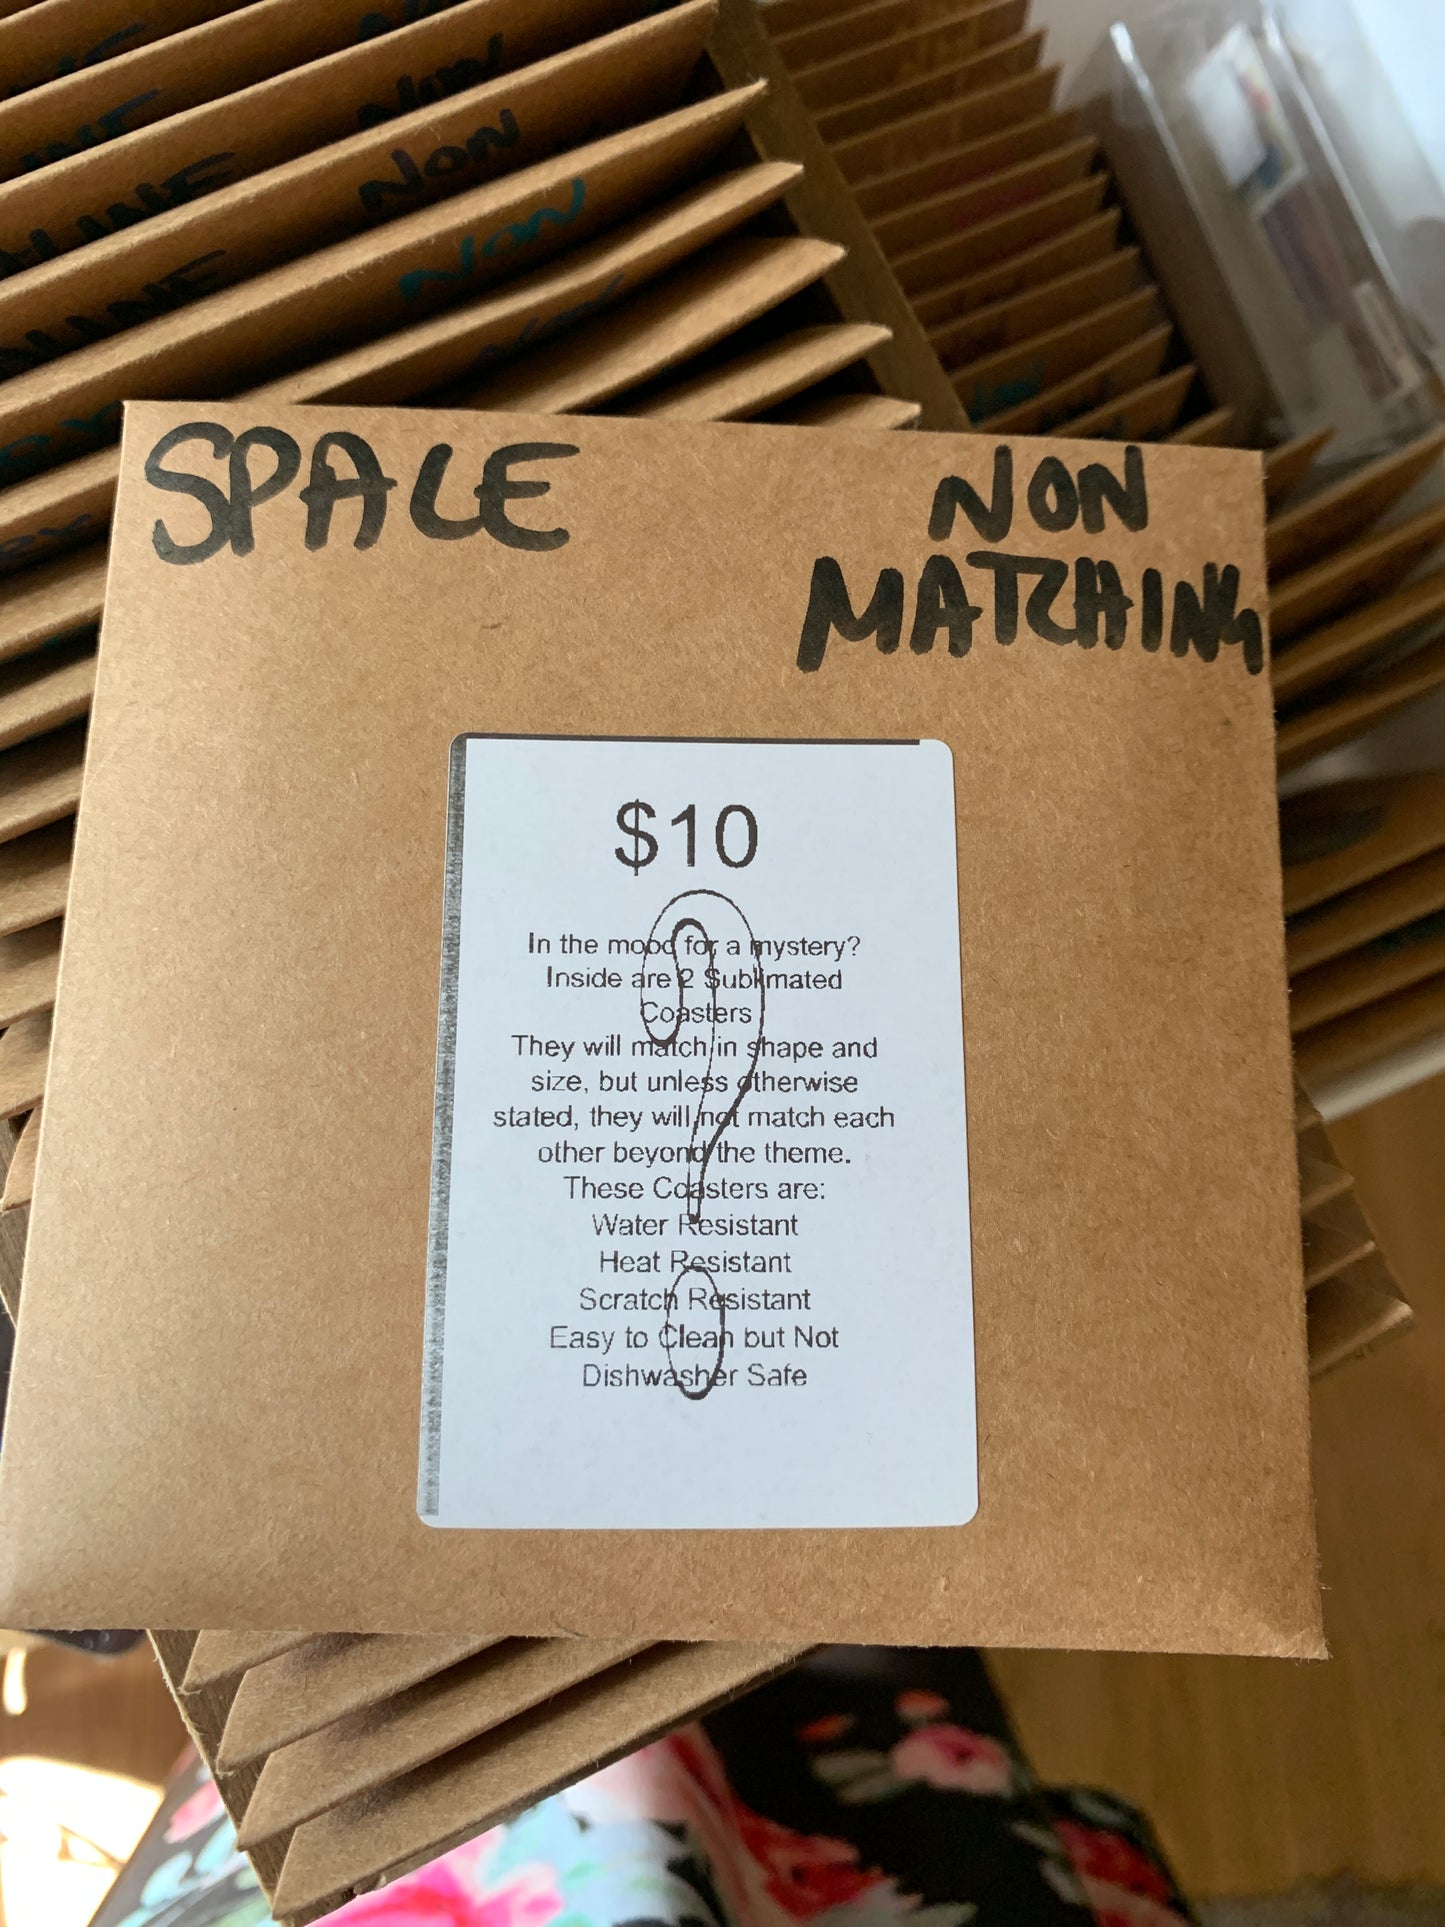 NON
NON
NON
SPACE
NON
MATCHING
$10
In the mood for a mystery?
Inside are 2 Sublimated
Coasters
They will match in shape and
size, but unless otherwise
stated, they will not match each
other beyond the theme.
These Coasters are:
Water Resistant
Heat Resistant
Scratch Resistant
Easy to Clean but Not
Dishwasher Safe